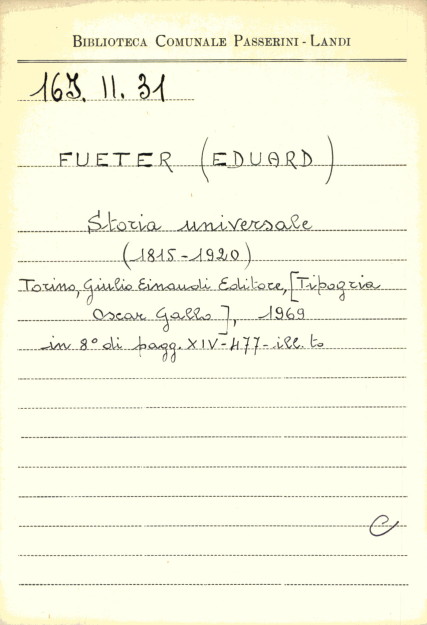 BIBLIOTECA COMUNALE PASSERINI - LANDI
16J. II. 31
FUETER (EDUARD)
Storia universale
(1815-1920)
Torino, Giulio Einaudi Editore, [Tipogria
Oscar Gallo], 1969
in 8° di pagg. XIV-477- ill. to
C